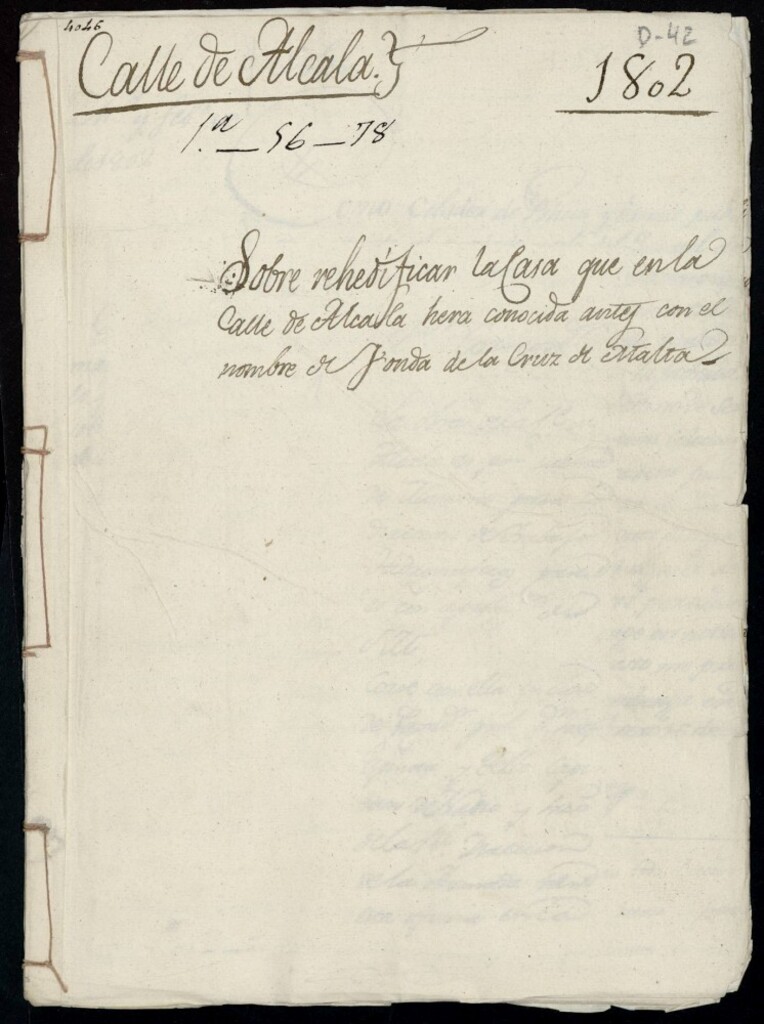 4046
D-42
Calle de Alcala.
1802
1.ª — 56 — 78
Sobre rehedificar la Casa que en la
Calle de Alcala hera conocida antes con el
nombre de Fonda de la Cruz de Malta